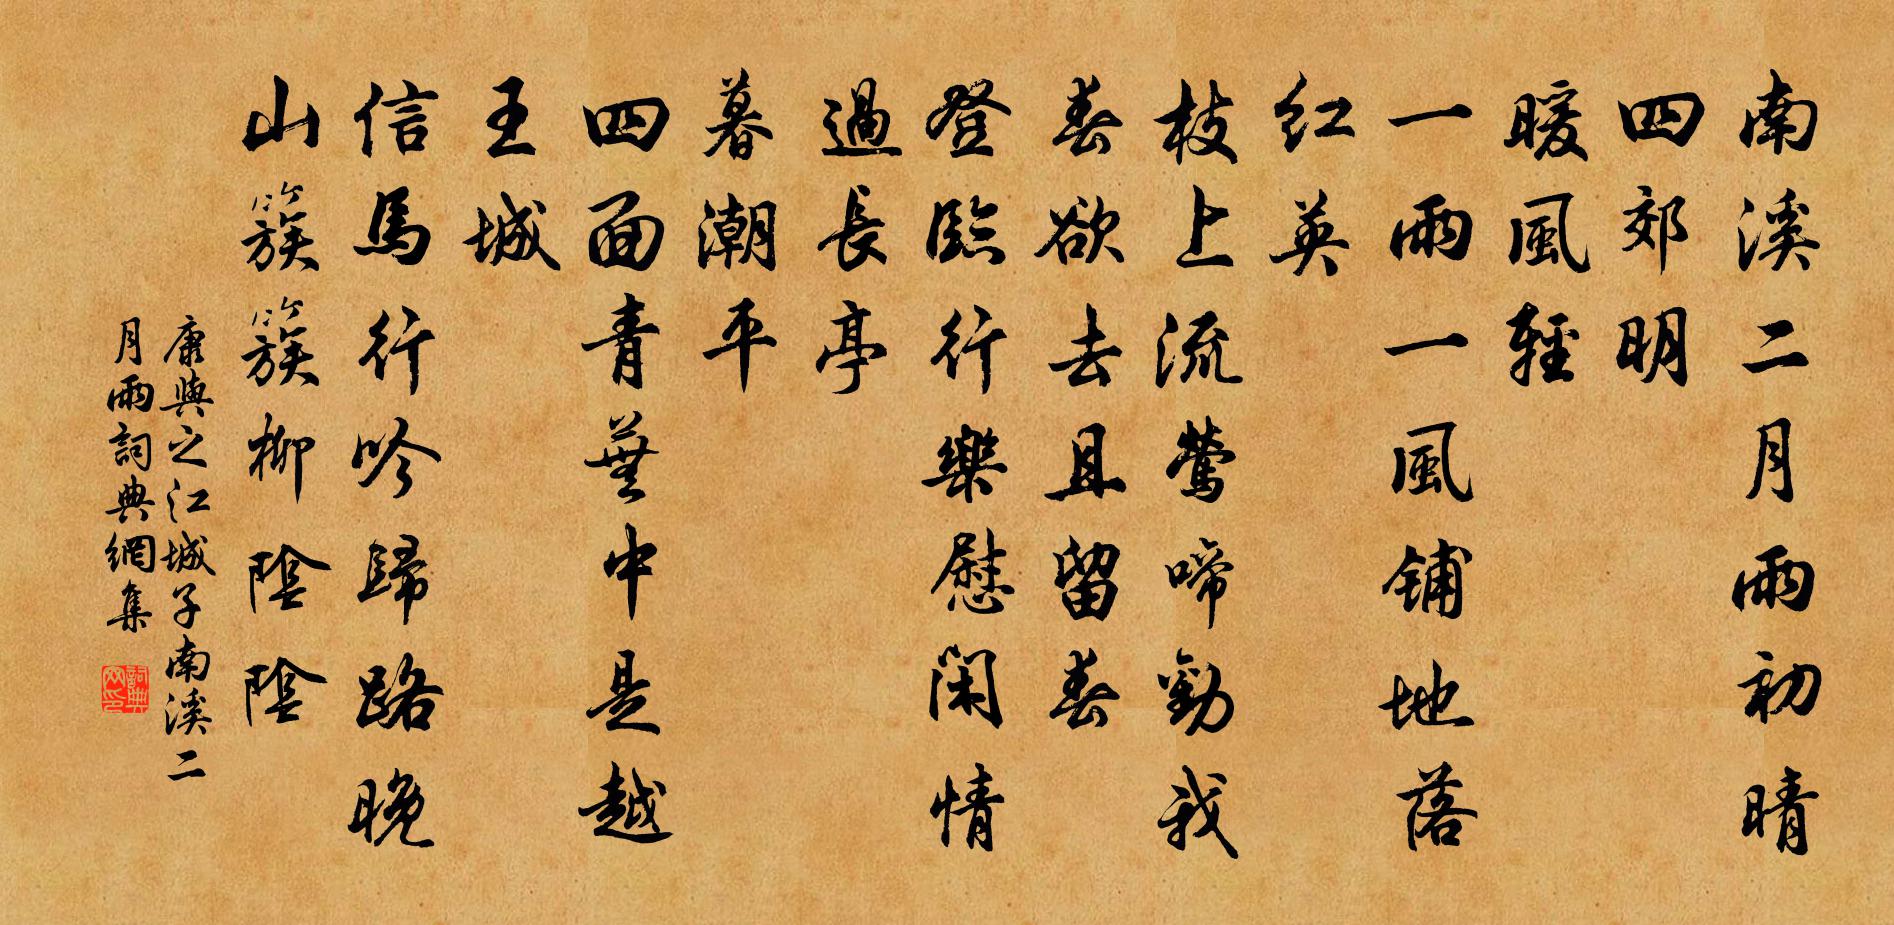 南溪二月雨初晴
四郊明
暖風輕
一雨一風鋪地落
紅英
枝上流鶯啼勸我
春欲去且留春
登臨行樂慰閑情
過長亭
暮潮平
四面青蕪中是越
王城
信馬行吟歸路晚
山簇簇柳陰陰
康與之江城子南溪二
月雨詞典網集
詞典網印